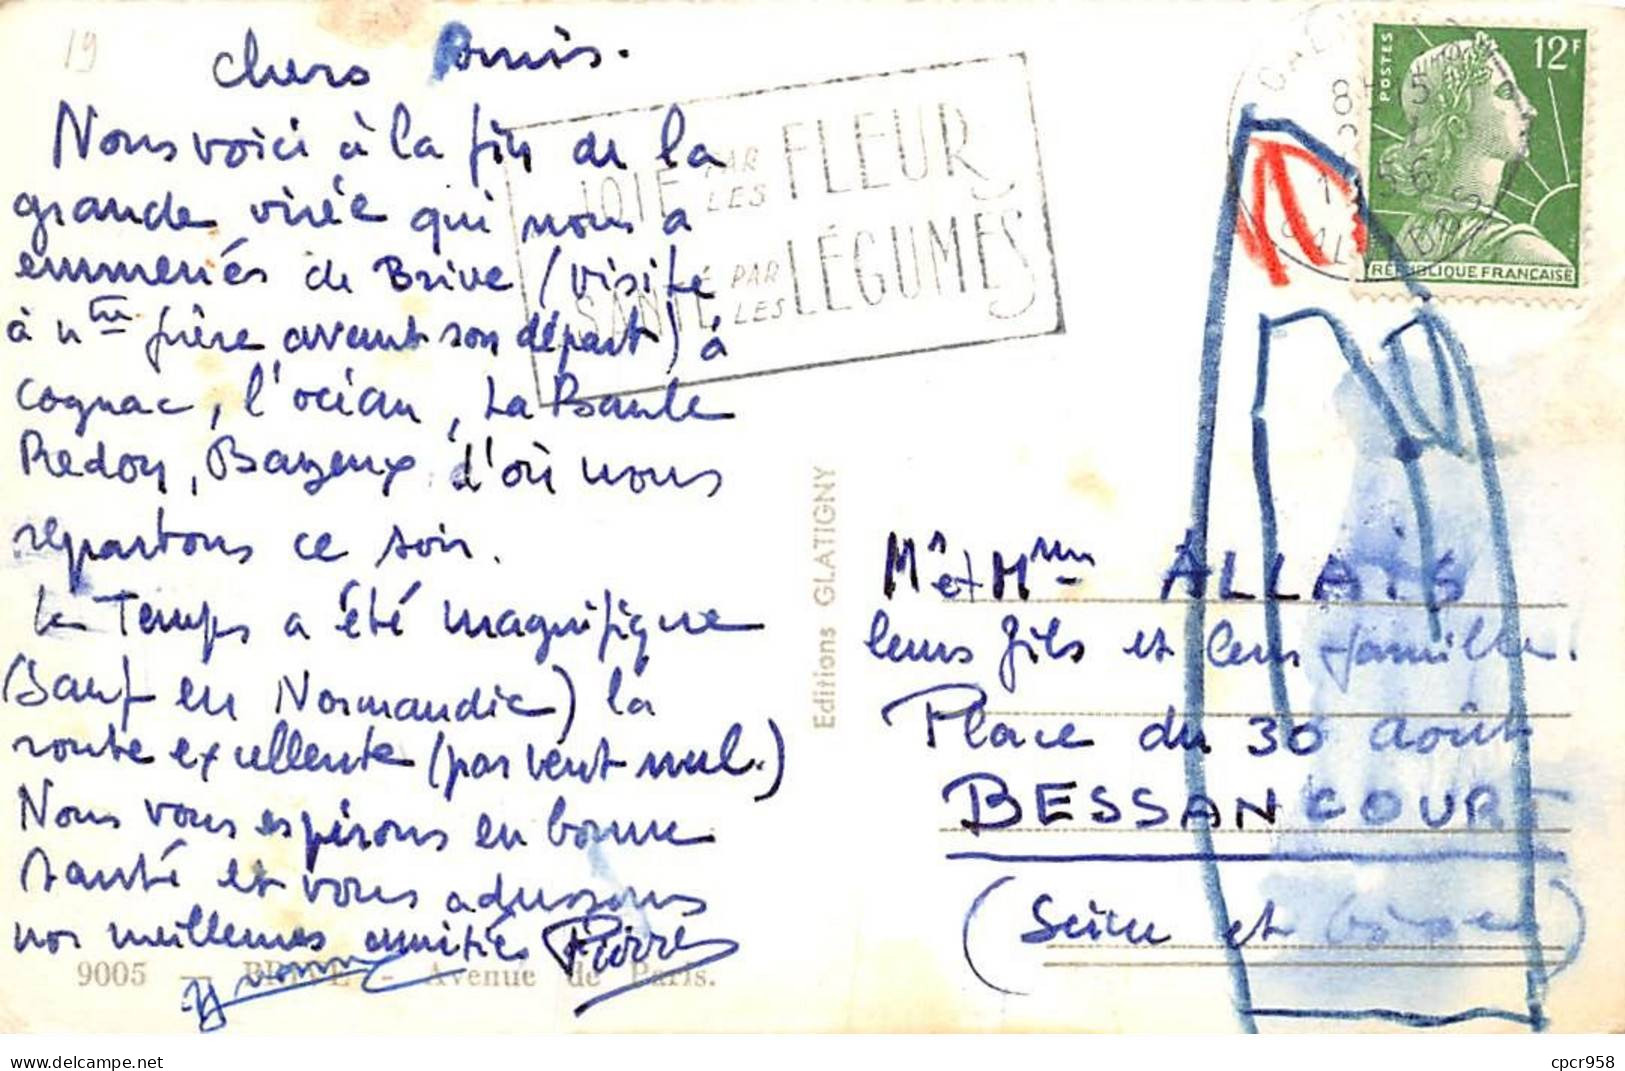 19
chers Amis.
Nous voici à la fin de la
grande virée qui nous a
emmenés de Brive (visite
à ntre frère avant son départ) à
Cognac, l'océan, La Baule
Redon, Bayeux d'où nous
repartons ce soir.
Le Temps a été magnifique
(sauf en Normandie) la
route excellente (pas vent nul.)
Nous vous espérons en bonne
santé et vous adressons
nos meilleures amitiés Pierre
9005 - BRIVE - Avenue de Paris.
JOIE PAR LES FLEURS
SANTÉ PAR LES LÉGUMES
Editions GLATIGNY
POSTES 12F
RÉPUBLIQUE FRANÇAISE
CALVADOS
Mr et Mme ALLAIS
leurs fils et leur famille.
Place du 30 août
BESSANCOURT
(Seine et Oise)
cpcr958